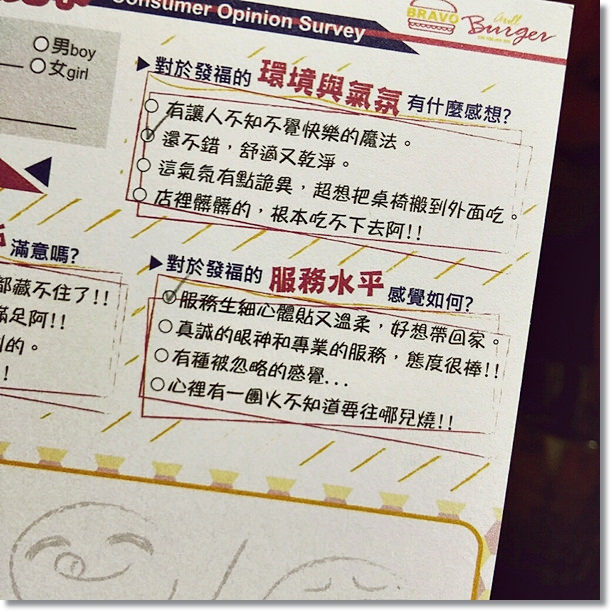 Consumer Opinion Survey
BRAVO
Grill
Burger
男boy
女girl
▶對於發福的 環境與氣氛 有什麼感想?
有讓人不知不覺快樂的魔法。
還不錯，舒適又乾淨。
這氣氛有點詭異，超想把桌椅搬到外面吃。
店裡髒髒的，根本吃不下去阿!!
滿意嗎?
都藏不住了!!
滿足阿!!
的。
!
▶對於發福的 服務水平 感覺如何?
服務生細心體貼又溫柔，好想帶回家。
真誠的眼神和專業的服務，態度很棒!!
有種被忽略的感覺...
心裡有一團火不知道要往哪兒燒!!